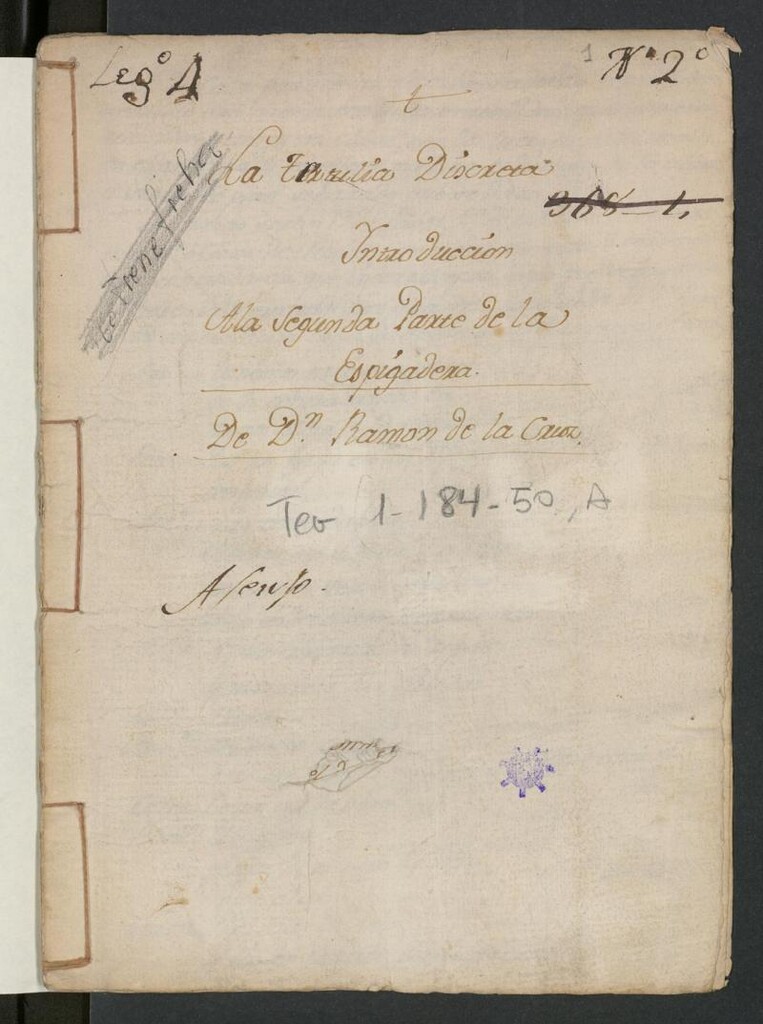 Leg.º 4
1
Nº 2º
La Tertulia Discreta
368-1,
tiene ficha
Introduccion
A la segunda Parte de la
Espigadera.
De D.n Ramon de la Cruz.
Tea 1-184-50, A
Asenjo.